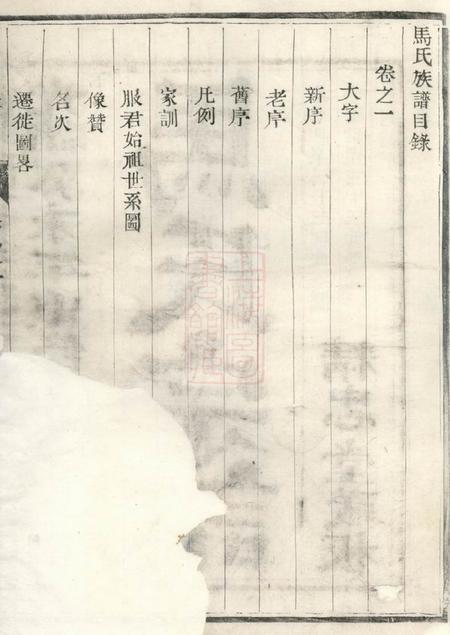 馬氏族譜目錄
卷之一
大字
新序
老序
舊序
凡例
家訓
服君始祖世系圖
像贊
名次
遷徙圖畧
上海圖書館藏